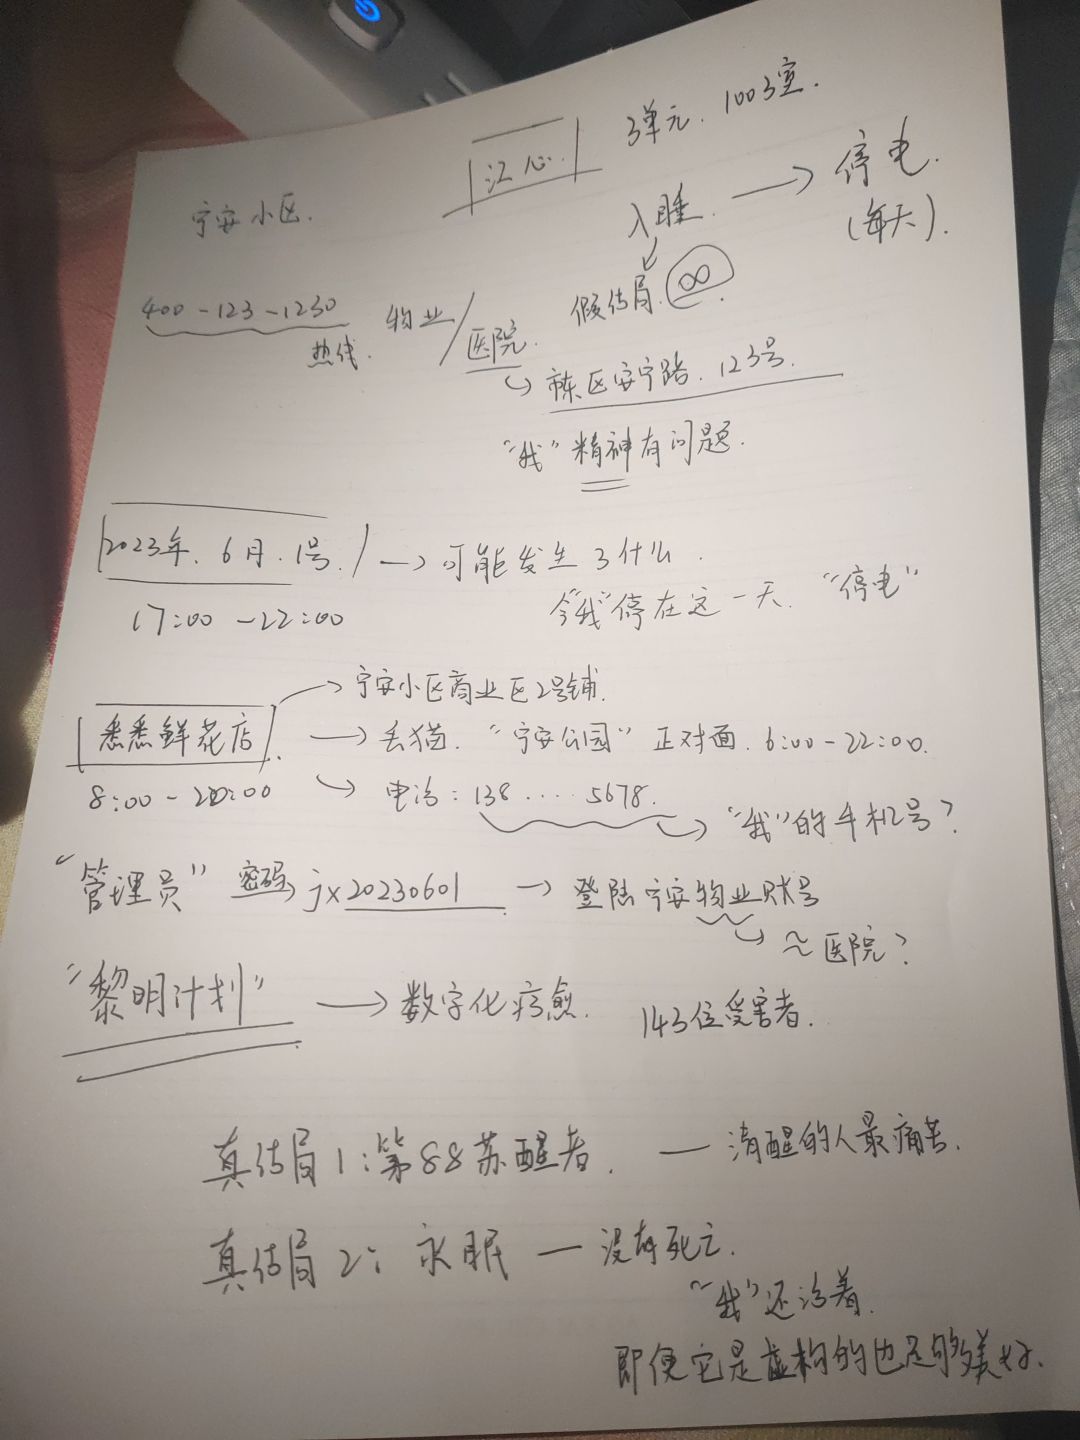 江心. 3单元. 1003室.
宁安小区. 入睡. → 停电.
(每天).
假结局. ∞.
400-123-1230 物业/医院.
热线.
↪ 东区安宁路. 123号.
"我"精神有问题.
2023年. 6月. 1号. → 可能发生了什么.
令"我"停在这一天. "停电"
17:00-22:00
→ 宁安小区商业区2号铺.
悉悉鲜花店 → 丢猫. "宁安公园" 正对面. 6:00-22:00.
8:00-20:00 ↪ 电话: 138....5678.
↪ "我"的手机号?
"管理员" 密码 jx20230601 → 登陆宁安物业账号
↪ ≈医院?
"黎明计划" → 数字化疗愈. 143位受害者.
真结局1: 第88苏醒者. — 清醒的人最痛苦.
真结局2: 永眠 — 没有死亡.
"我"还活着.
即便它是虚构的也足够美好.